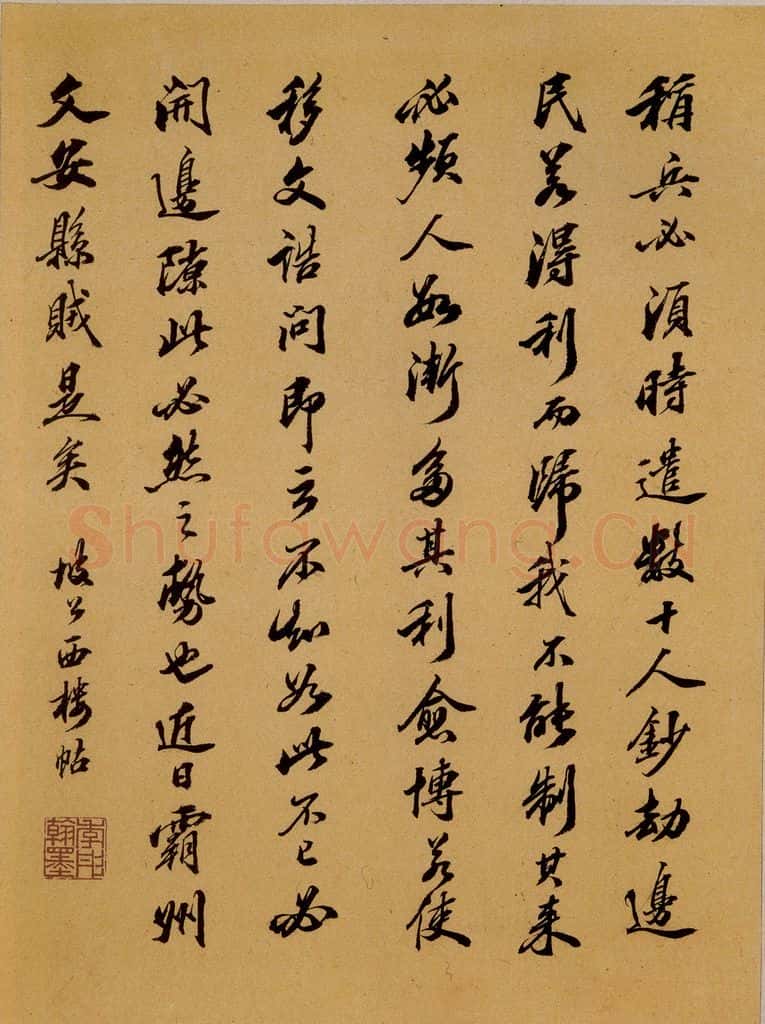 稱兵必須時遣數十人鈔劫邊
民若得利而歸我不能制其来
必頻人數漸多其利愈博若使
移文誥問即云不知如此不已必
開邊隙此必然之勢也近日霸州
文安縣賊是矣 坡公西樓帖
翰墨
Shufawang.cn